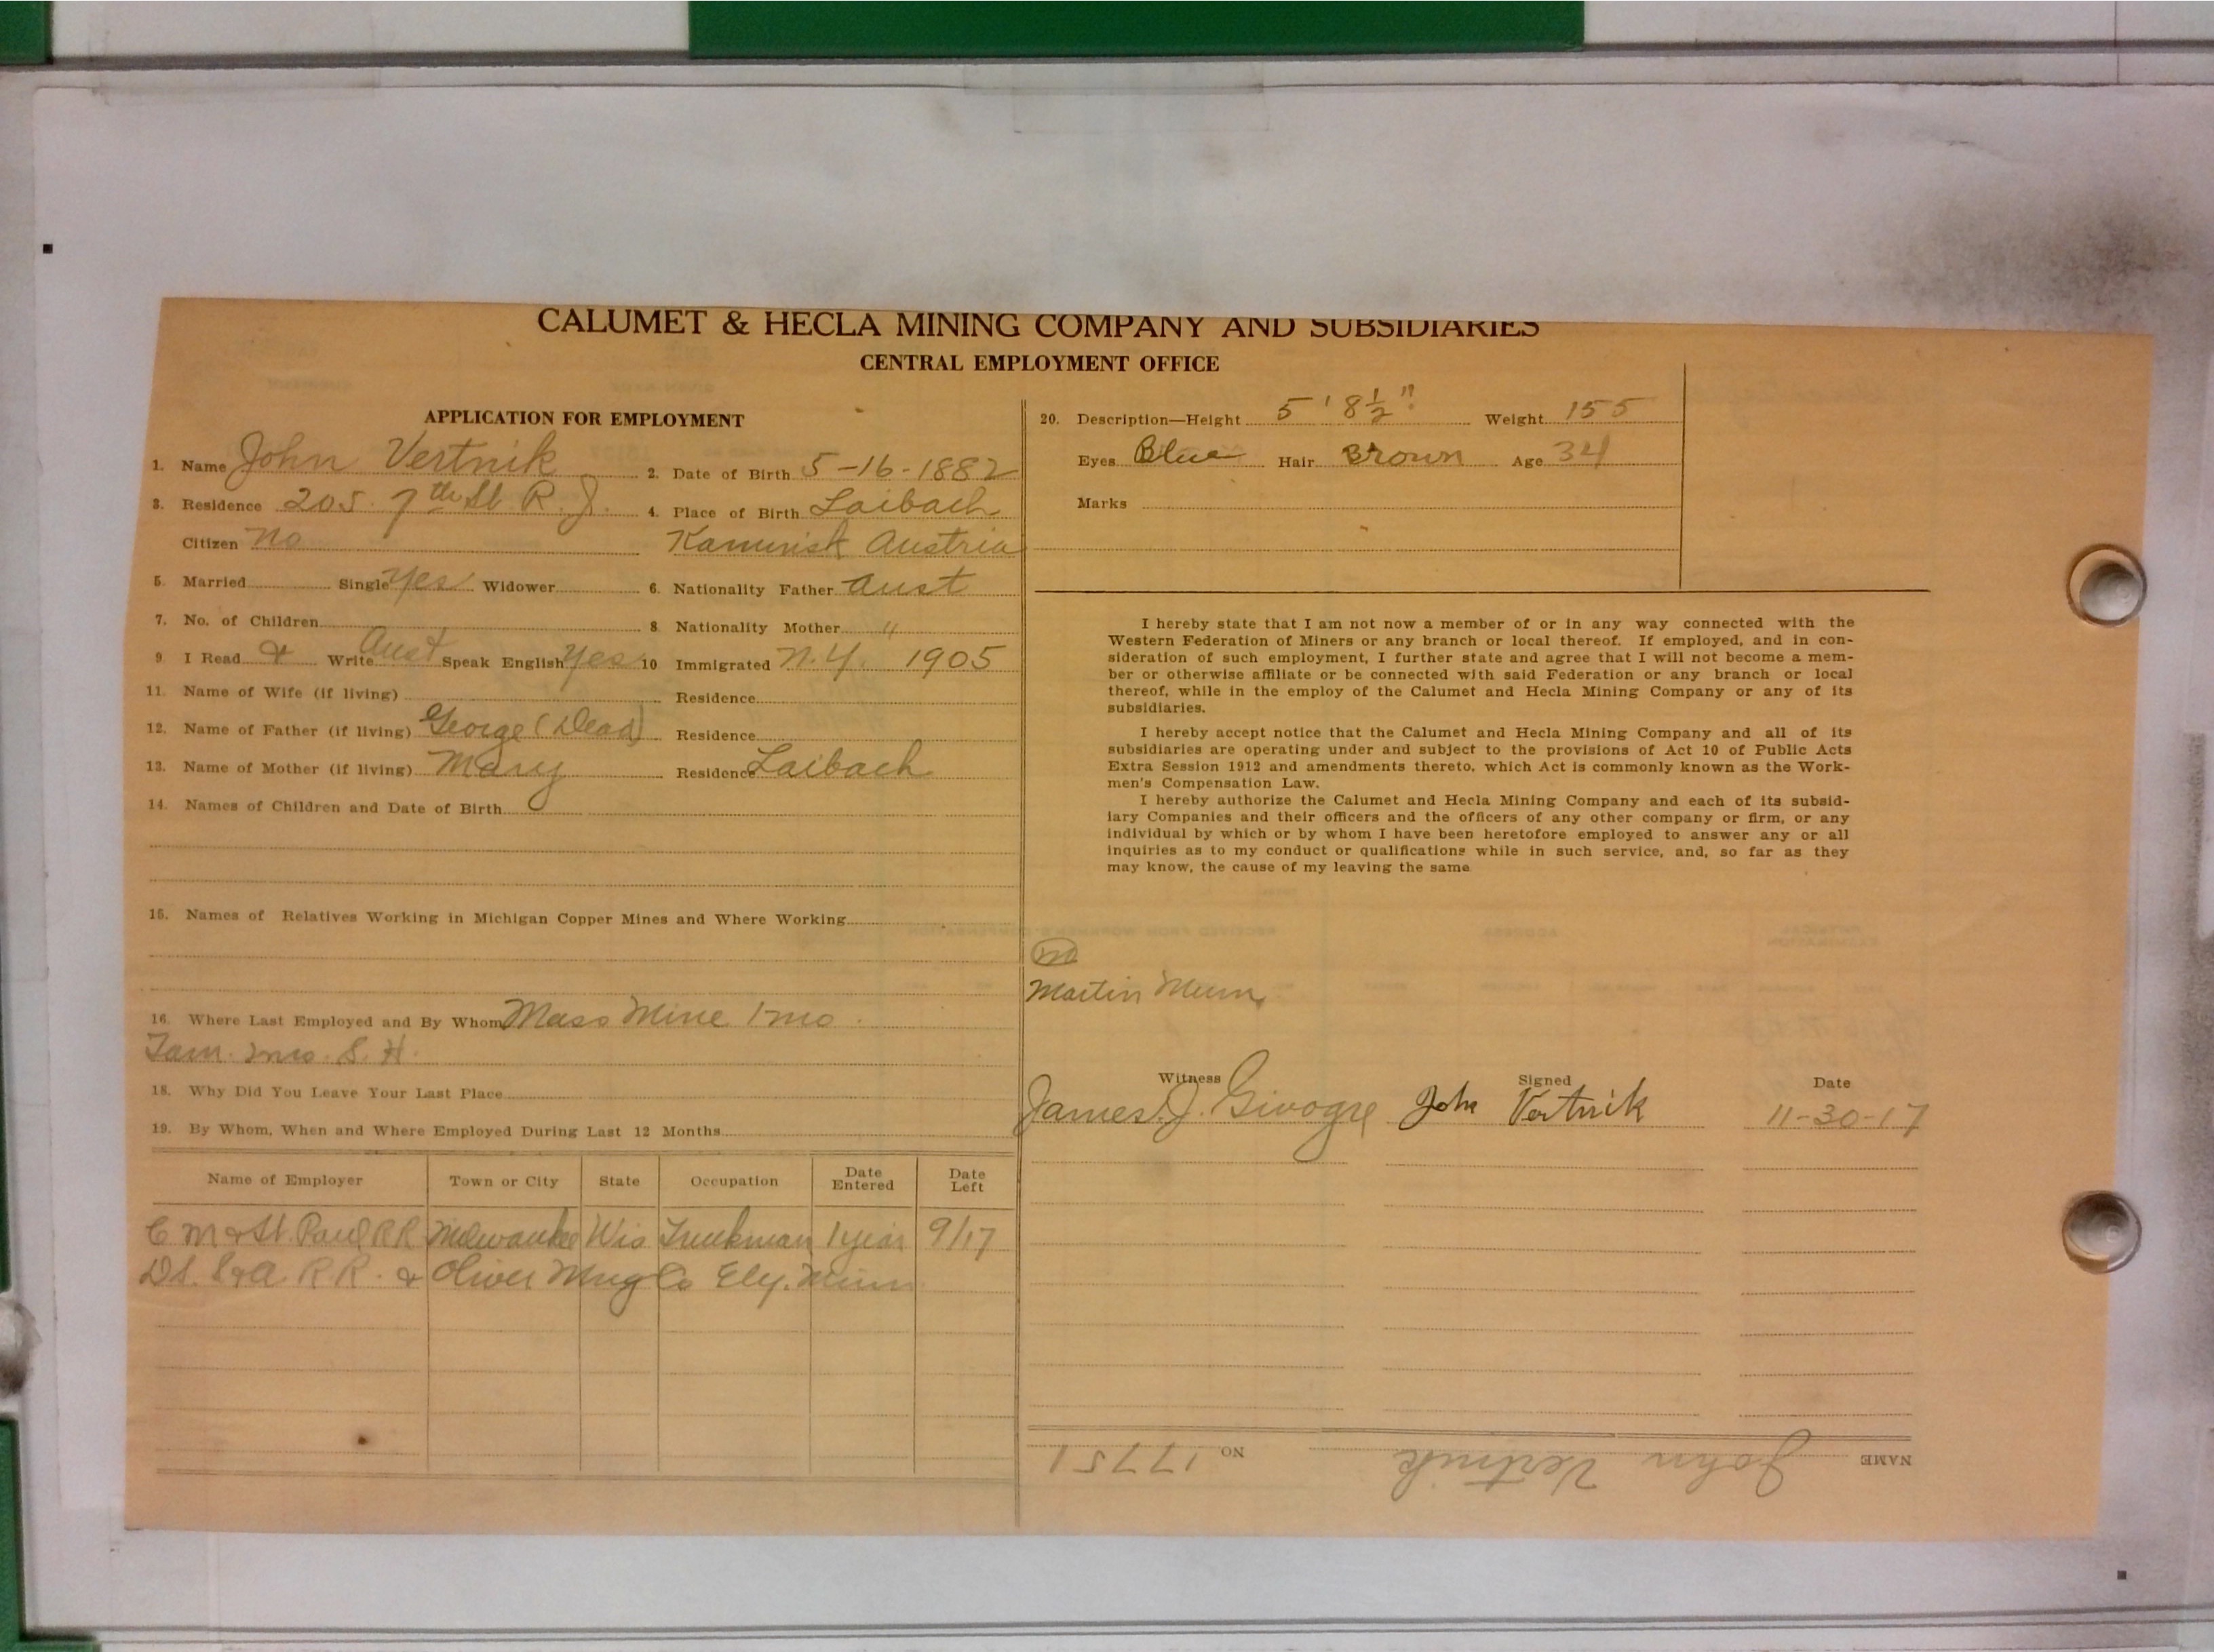 CALUMET & HECLA MINING COMPANY AND SUBSIDIARIES
CENTRAL EMPLOYMENT OFFICE
APPLICATION FOR EMPLOYMENT
1. Name John Vertnik 2. Date of Birth 5-16-1882
3. Residence 205. 7th St. R. J. 4. Place of Birth Laibach
Citizen No Austria
5. Married Single Yes Widower 6. Nationality Father Aust
7. No. of Children 8. Nationality Mother "
9. I Read & Write Aust Speak English Yes 10 Immigrated N.Y. 1905
11. Name of Wife (if living) Residence
12. Name of Father (if living) George (Dead) Residence
13. Name of Mother (if living) Mary Residence Laibach
14. Names of Children and Date of Birth
15. Names of Relatives Working in Michigan Copper Mines and Where Working
16. Where Last Employed and By Whom Mass Mine 1 mo.
Tam. 2 mo. S. H.
18. Why Did You Leave Your Last Place
19. By Whom, When and Where Employed During Last 12 Months
Name of Employer Town or City State Occupation Date Entered Date Left
C M & St. Paul RR Milwaukee Wis 1 year 9/17
D S. S & A R R. & Oliver Mng Co Ely. Minn
20. Description—Height 5' 8 1/2" Weight 155
Eyes Blue Hair Brown Age 34
Marks
I hereby state that I am not now a member of or in any way connected with the
Western Federation of Miners or any branch or local thereof. If employed, and in con-
sideration of such employment, I further state and agree that I will not become a mem-
ber or otherwise affiliate or be connected with said Federation or any branch or local
thereof, while in the employ of the Calumet and Hecla Mining Company or any of its
subsidiaries.
I hereby accept notice that the Calumet and Hecla Mining Company and all of its
subsidiaries are operating under and subject to the provisions of Act 10 of Public Acts
Extra Session 1912 and amendments thereto, which Act is commonly known as the Work-
men's Compensation Law.
I hereby authorize the Calumet and Hecla Mining Company and each of its subsid-
iary Companies and their officers and the officers of any other company or firm, or any
individual by which or by whom I have been heretofore employed to answer any or all
inquiries as to my conduct or qualifications while in such service, and, so far as they
may know, the cause of my leaving the same
Martin
Witness Signed Date
James J. John Vertnik 11-30-17
NAME John Vertnik NO 17751